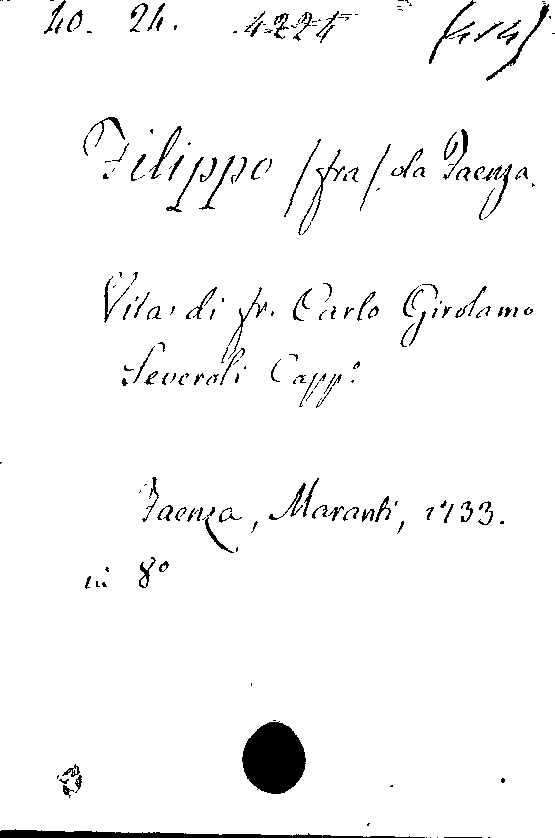 40. 24. 4224 (414)
Filippo (fra) da Faenza.
Vita di fr. Carlo Girolamo
Severoli Capp.º
Faenza, Maranti, 1733.
in 8º